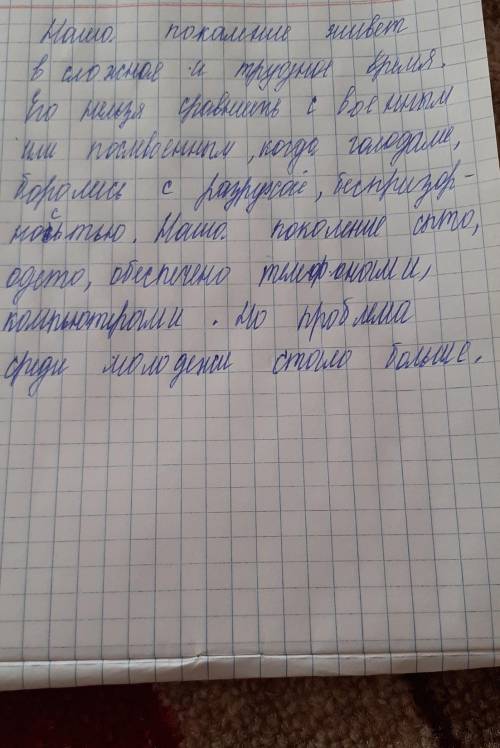 Наше поколение живет
в сложное и трудное время.
Его нельзя сравнить с военным
или послевоенным, когда голодали,
боролись с разрухой, беспризор-
ностью. Наше поколение сыто,
одето, обеспечено телефонами,
компьютерами. Но проблема
среди молодежи стало больше.